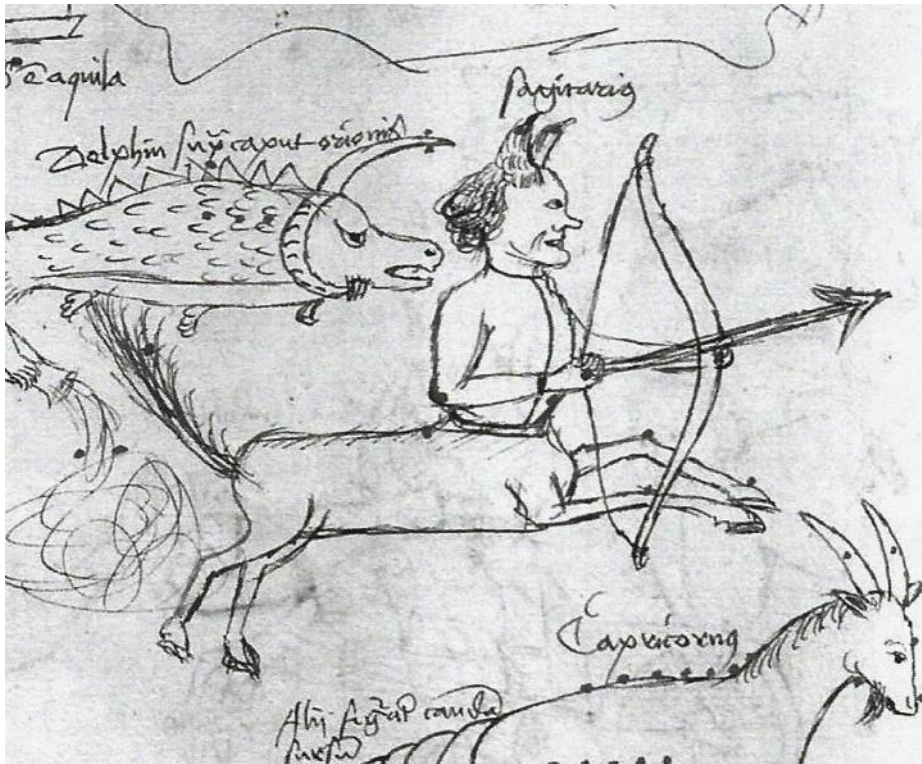 aquila
Sagitarius
Delphin super caput orionis
Capricornus
Alii cauda